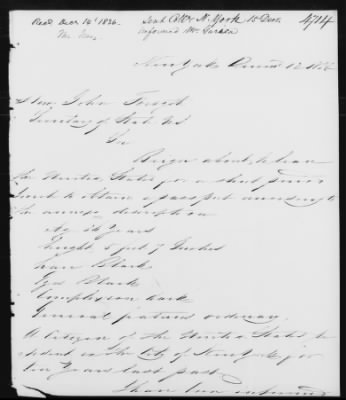 Recd Decr 14th 1836.
Sent Coll N. York 15 Dec.
4704
informed Mr.
New York December 12 1836
Hon. John Forsyth
Secretary of State US
Sir
Being about to leave
the United States for a short period
I wish to obtain a passport according to
the annexed description
Age Years
height 5 feet 7 Inches
hair Black
Eyes Black
Complexion dark
General features ordinary.
A Citizen of the United States &
resident in the City of New York for
ten Years last past
I have been informed